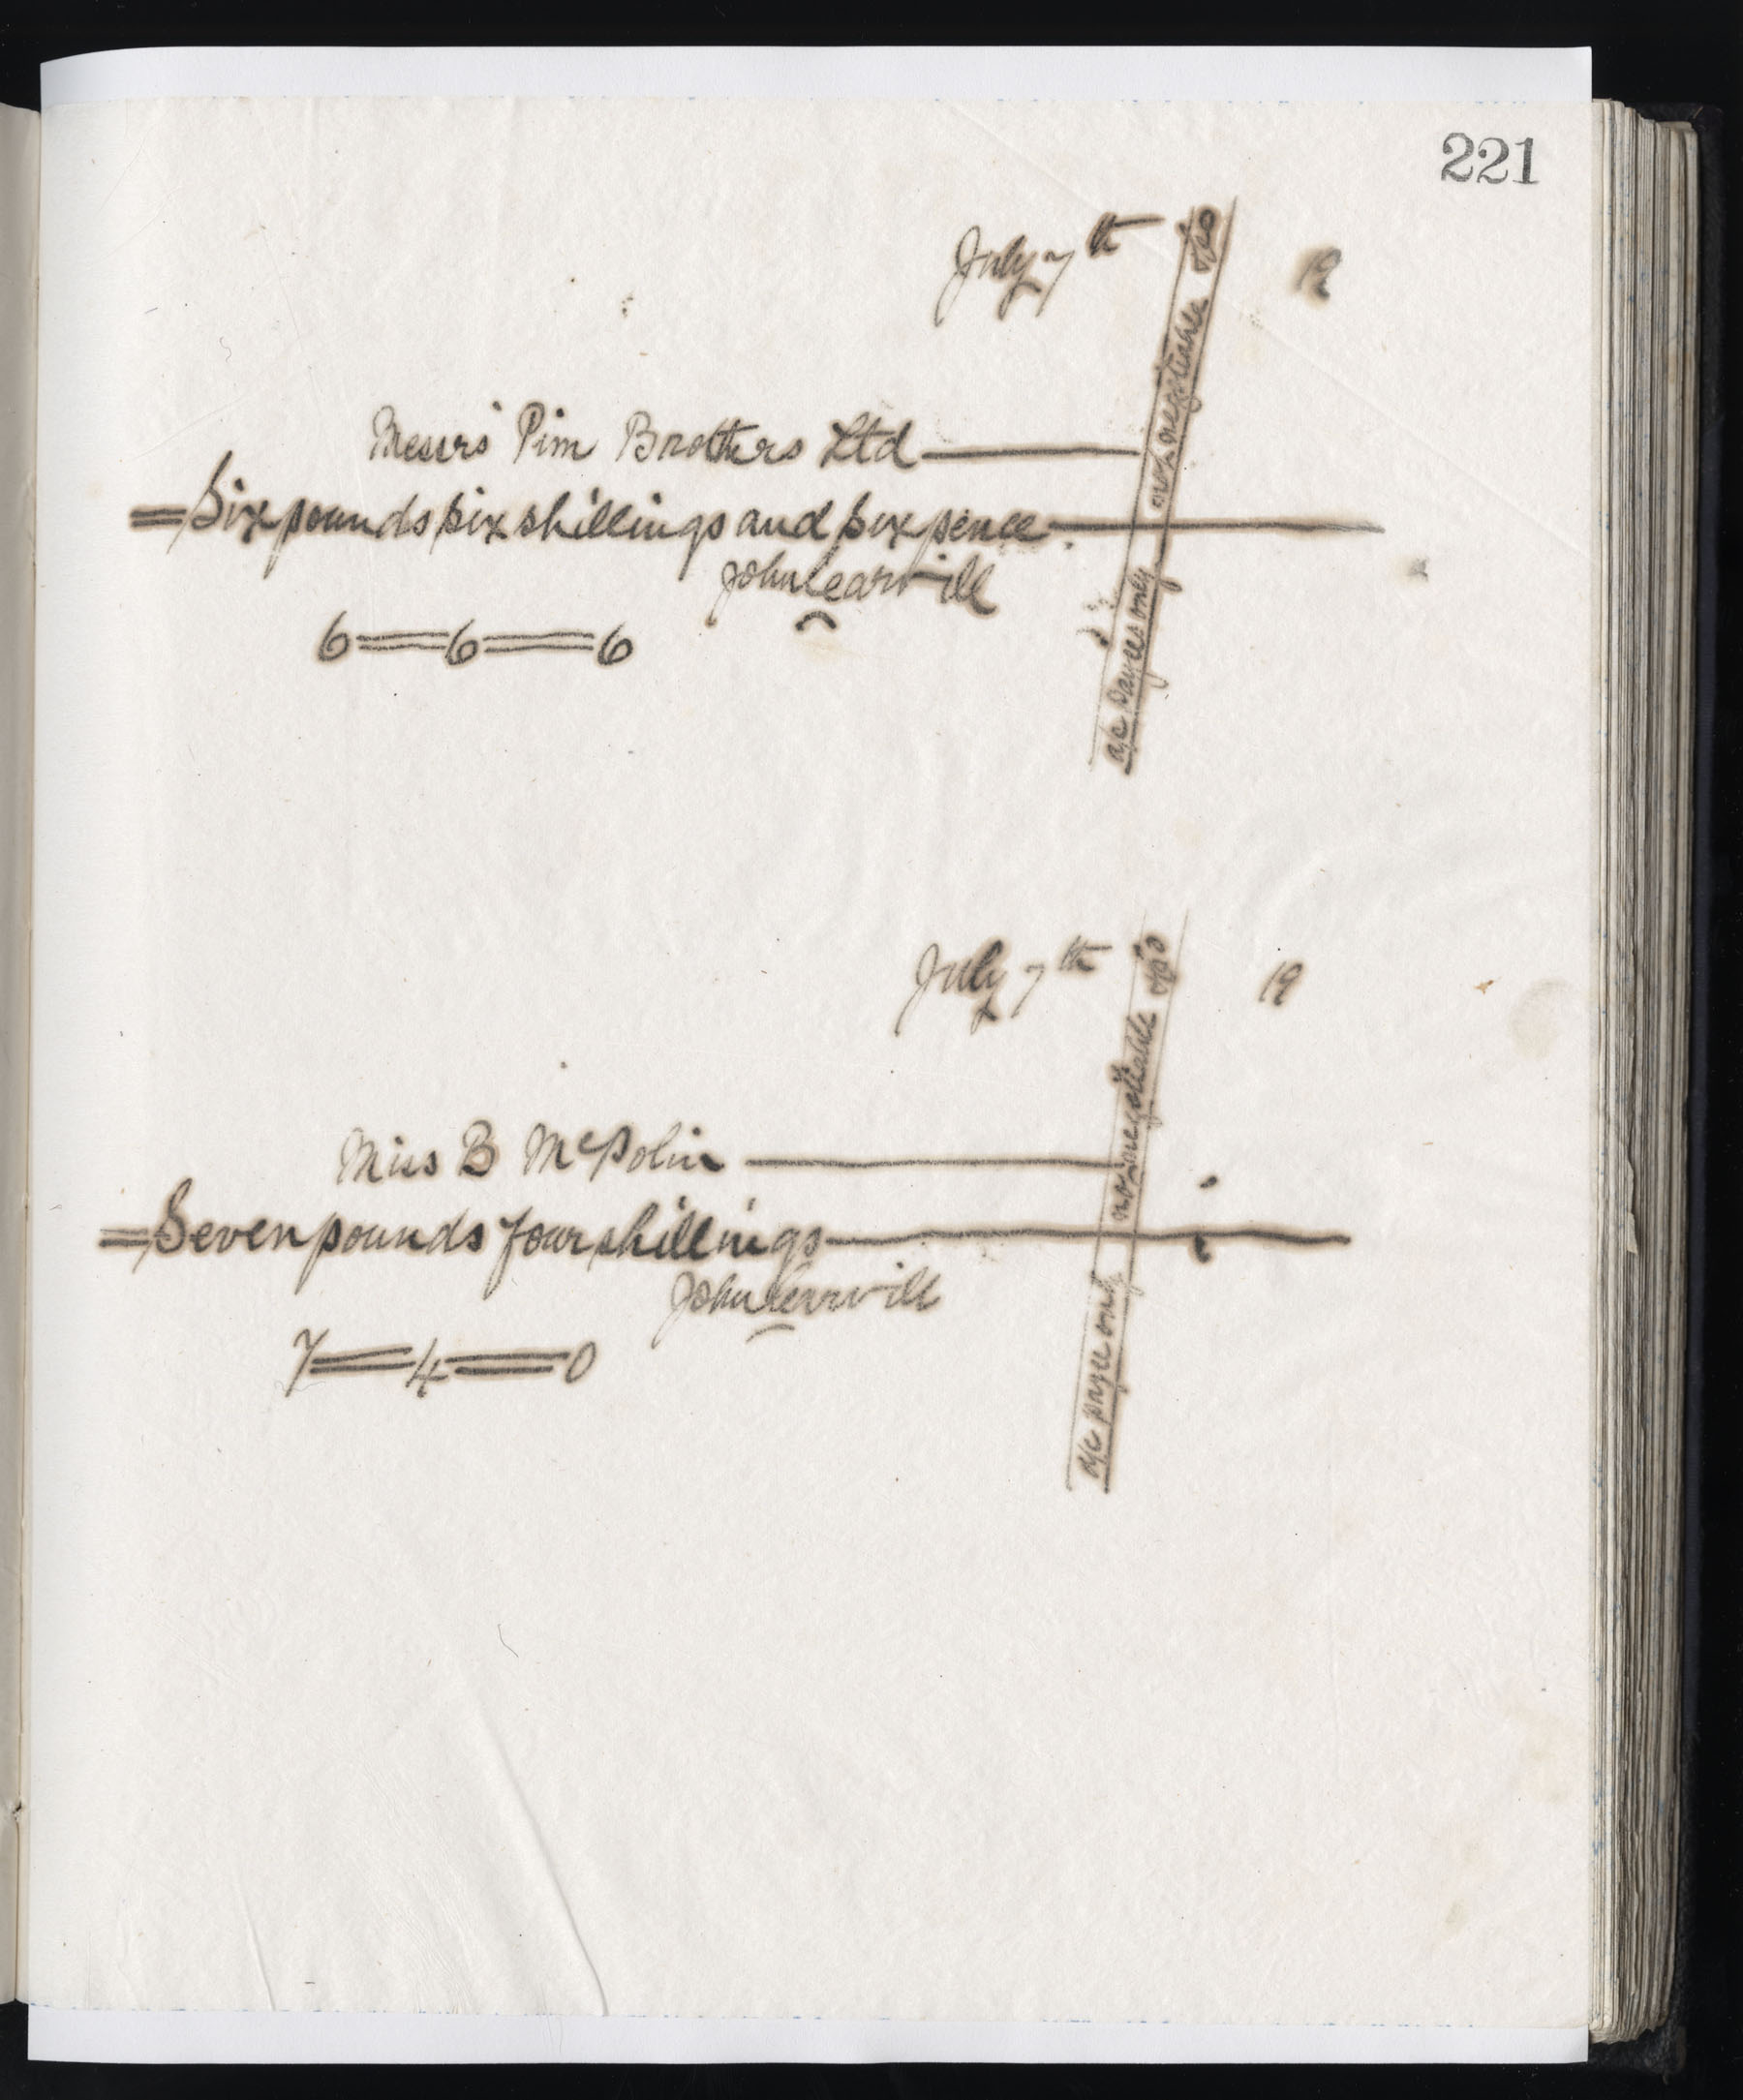 221
July 7th 19
Messrs Pim Brothers Ltd
Six pounds six shillings and six pence
John Learwill
6 = 6 = 6
a/c payees only not negotiable & Co
July 7th 19
Miss B McPolin
Seven pounds four shillings
John Learwill
7 = 4 = 0
a/c payee only not negotiable & Co